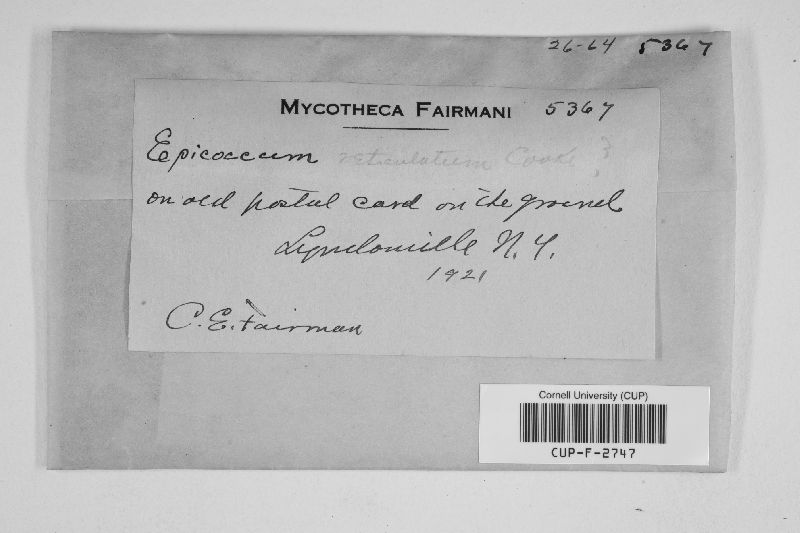 26-64 5367
MYCOTHECA FAIRMANI 5367
Epicoccum reticulatum Cooke ?
on old postal card on the ground
Lyndonville N.Y.
1921
C.E. Fairman
Cornell University (CUP)
CUP-F-2747